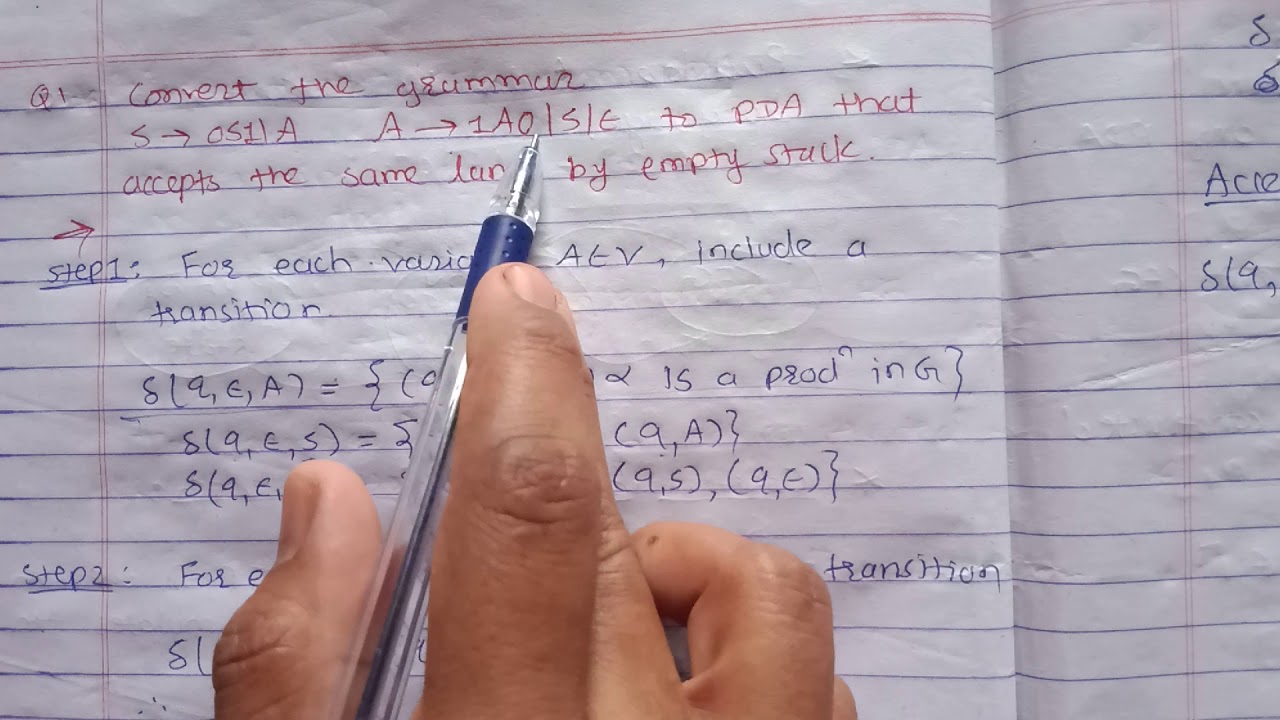 Q1 Convert the grammar
S → 0S1|A A → 1A0|S|ϵ to PDA that
accepts the same by empty stack.
Step1: For each A∈V, include a
transition
δ(q,ϵ,A) = { α is a prodⁿ in G}
δ(q,ϵ,S) = { (q,A)}
δ(q,ϵ, (q,S),(q,ϵ)}
Step2: For transition
δ(
∴
δ
Acce
δ(q,